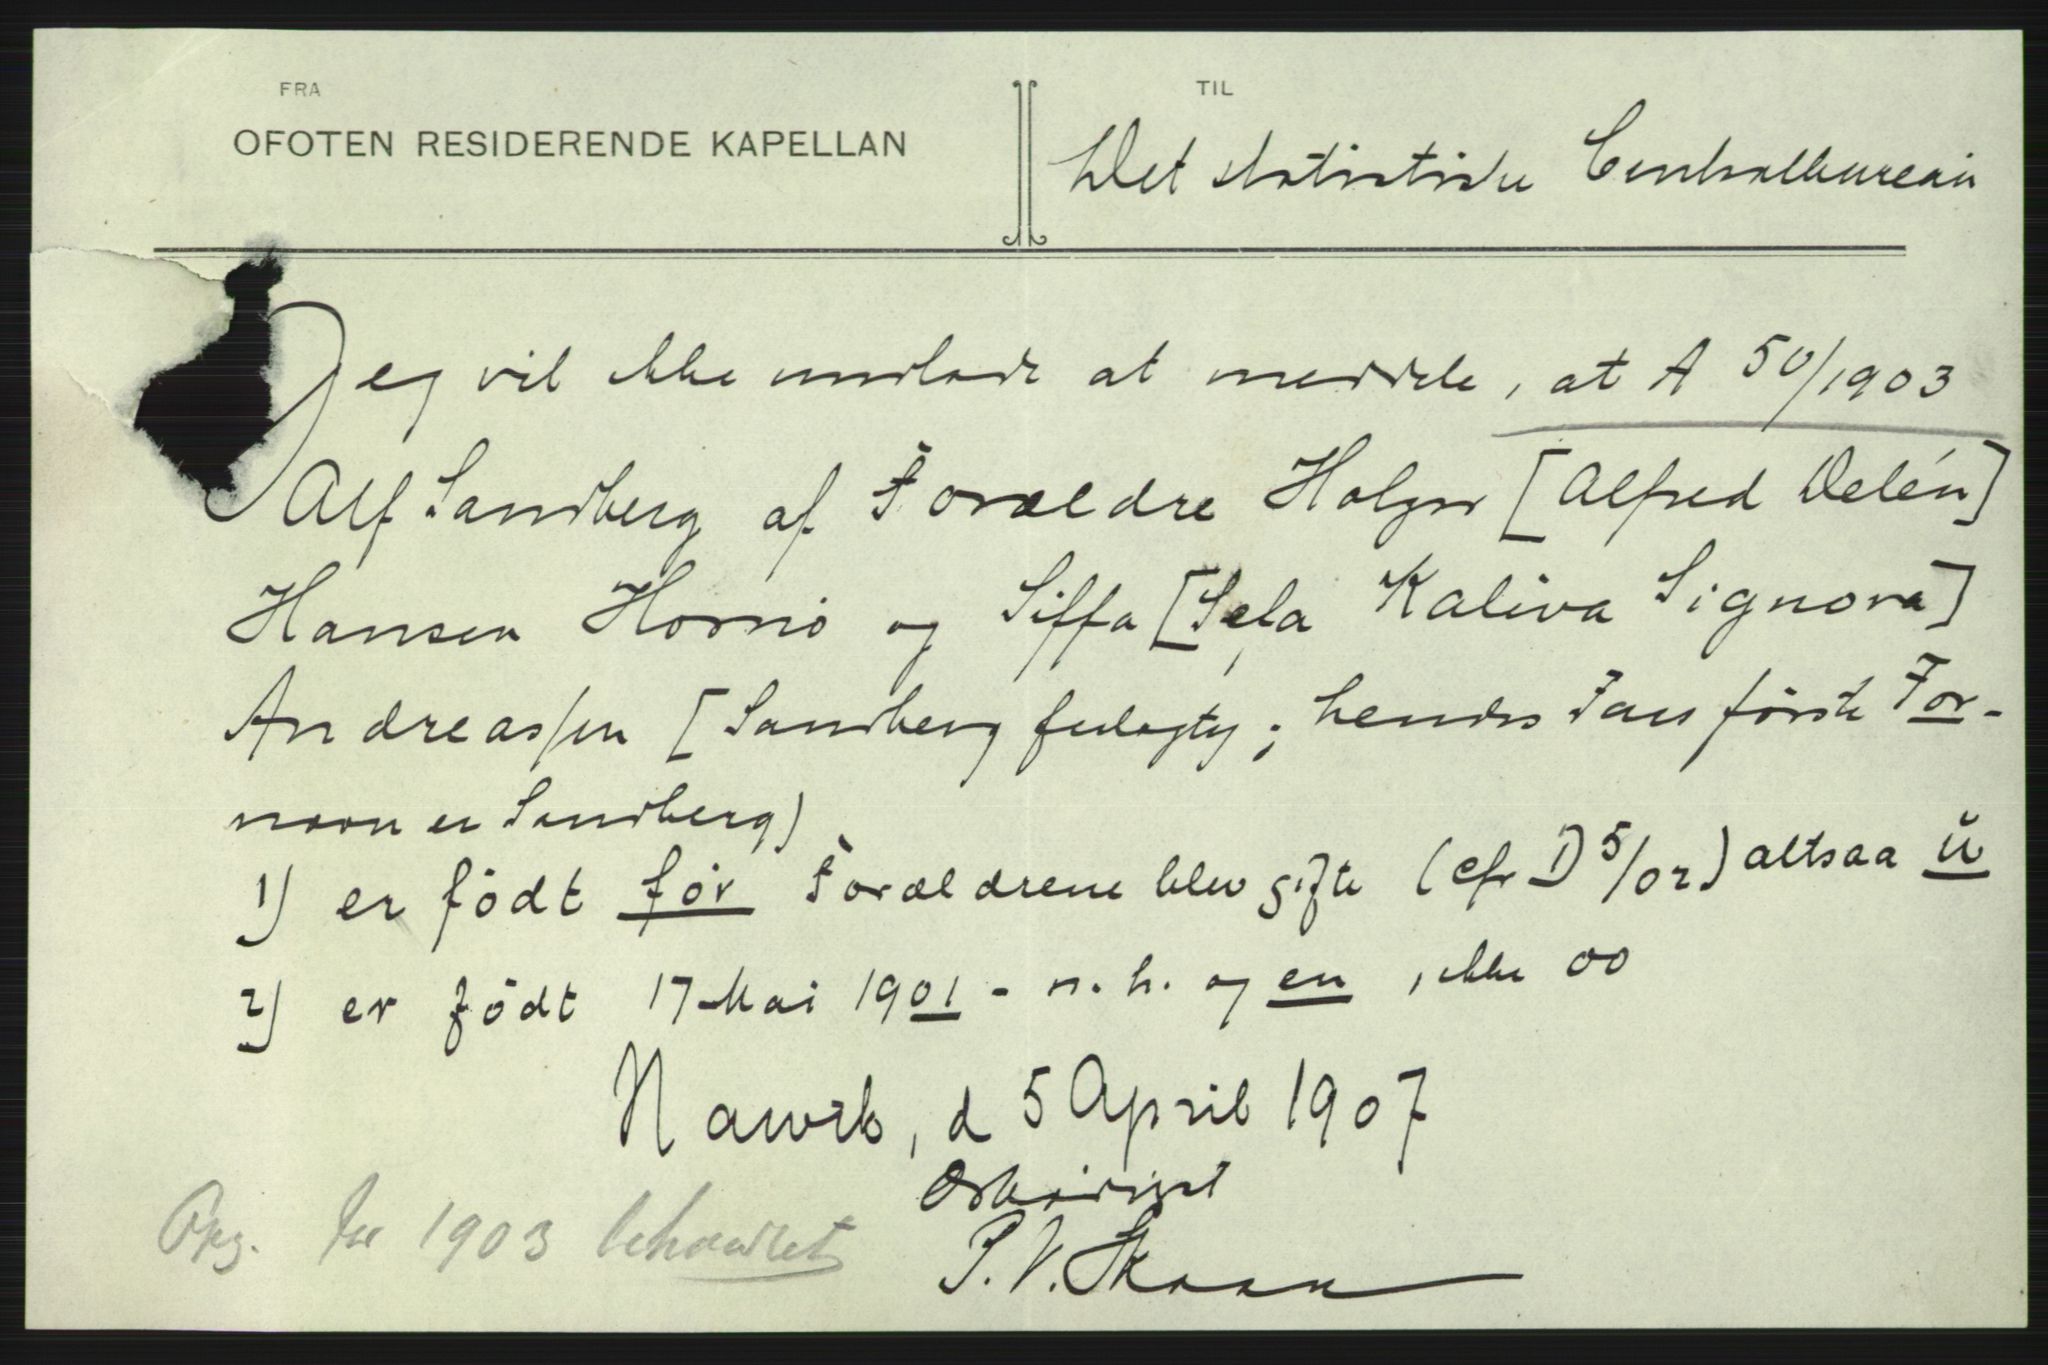 FRA
OFOTEN RESIDERENDE KAPELLAN
TIL
Det statistiske Centralbureau
Jeg vil ikke undlade at meddele, at A 50/1903
Alf Sandberg af Forældre Holger [Alfred Delén]
Hansen Hornø og Siffa [Sela Kaliva Signora]
Andreassen [Sandberg ; hendes Fars første For-
navn er Sandberg)
1) er födt før Forældrene blev gifte (cfr D 5/02) altsaa ŭ
2) er födt 17 Mai 1901 - n. h. og en, ikke 00
Narvik, d 5 April 1907
Ærbødigst
P. V. Skaar
Opg. for 1903 behandlet